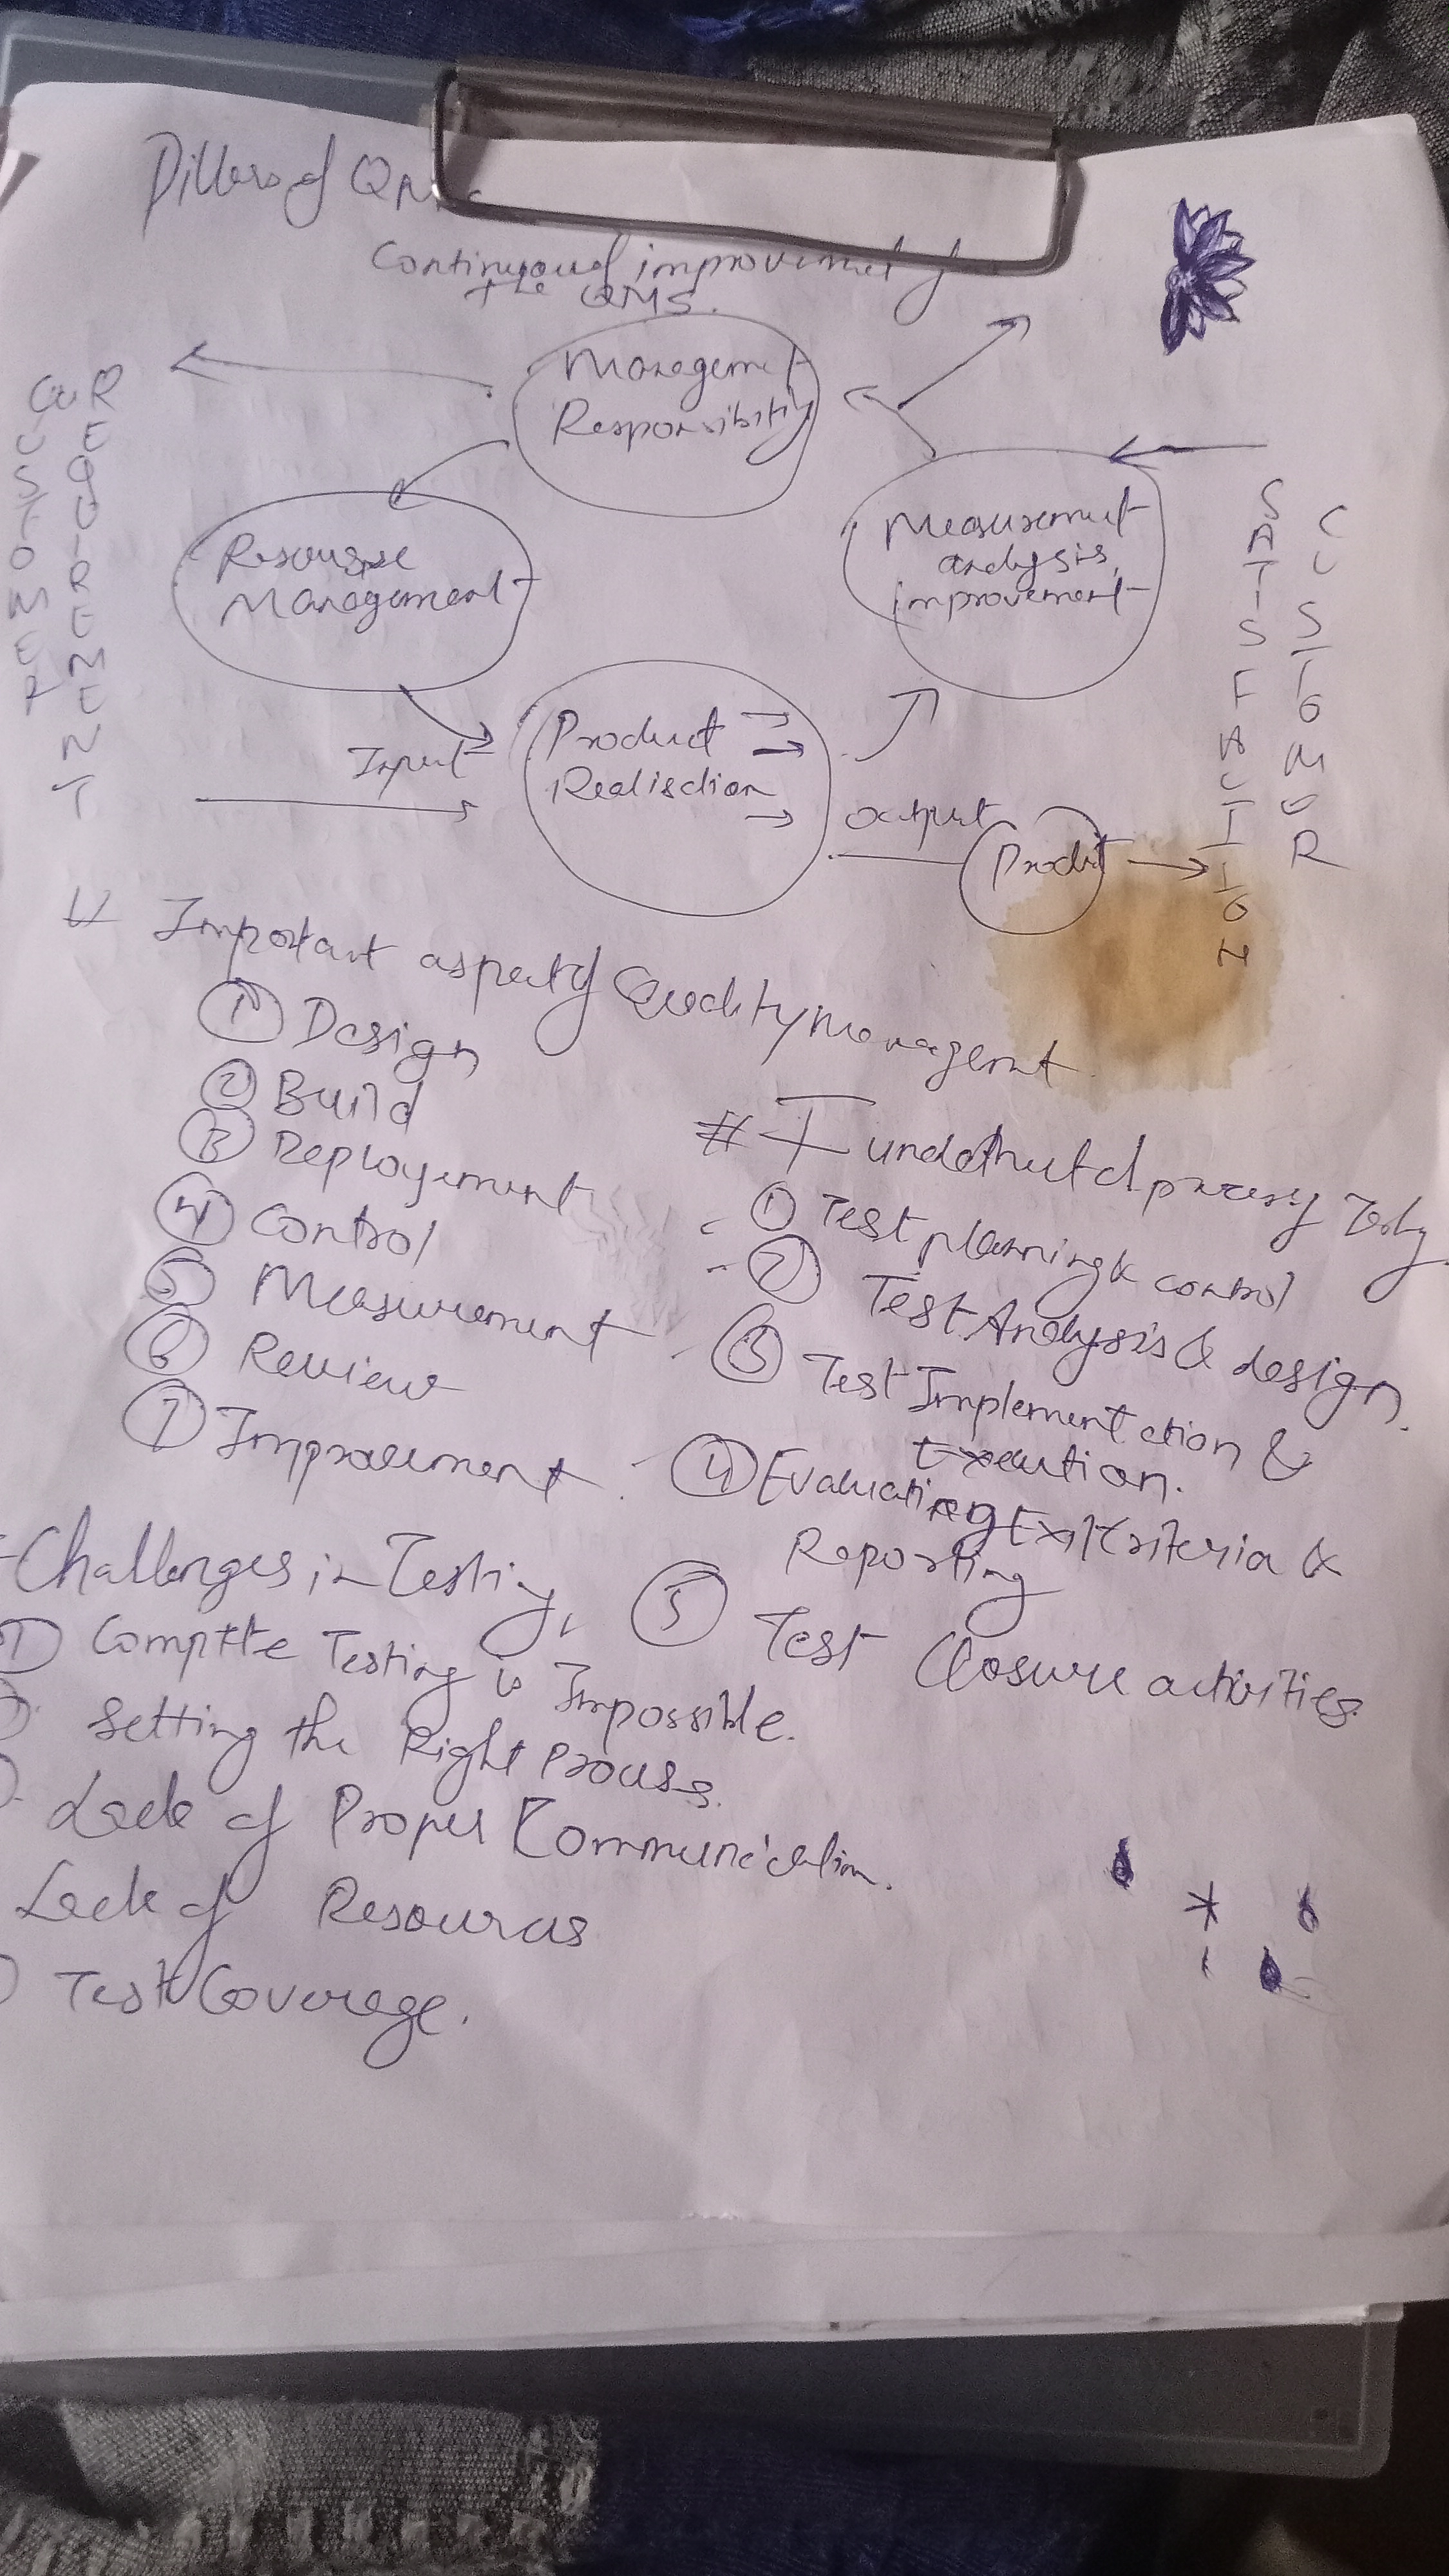 Pillers of QM
Continuous improvemet f
the QMS.
Management
Responsibility
CUSTOMER
REQUIREMENT
Resourse
Management
Measurement
analysis,
improvement
SATISFACTION
CUSTOMER
Input
Product
Realisction
output
Product
Important aspect of Quality Management
① Design
② Build
③ Deployement
④ Control
⑤ Measurement
⑥ Review
⑦ Improvement
# process of
① Test planning & control
② Test Analysis & design.
③ Test Implementation &
Execution.
④ Evaluating Exit Criteria &
Reporting
⑤ Test Closure activities
Challenges in Testing,
① Complete Testing is Impossible.
Setting the Right Process.
Lack of Proper Communication.
Lack of Resources
Test Coverage.